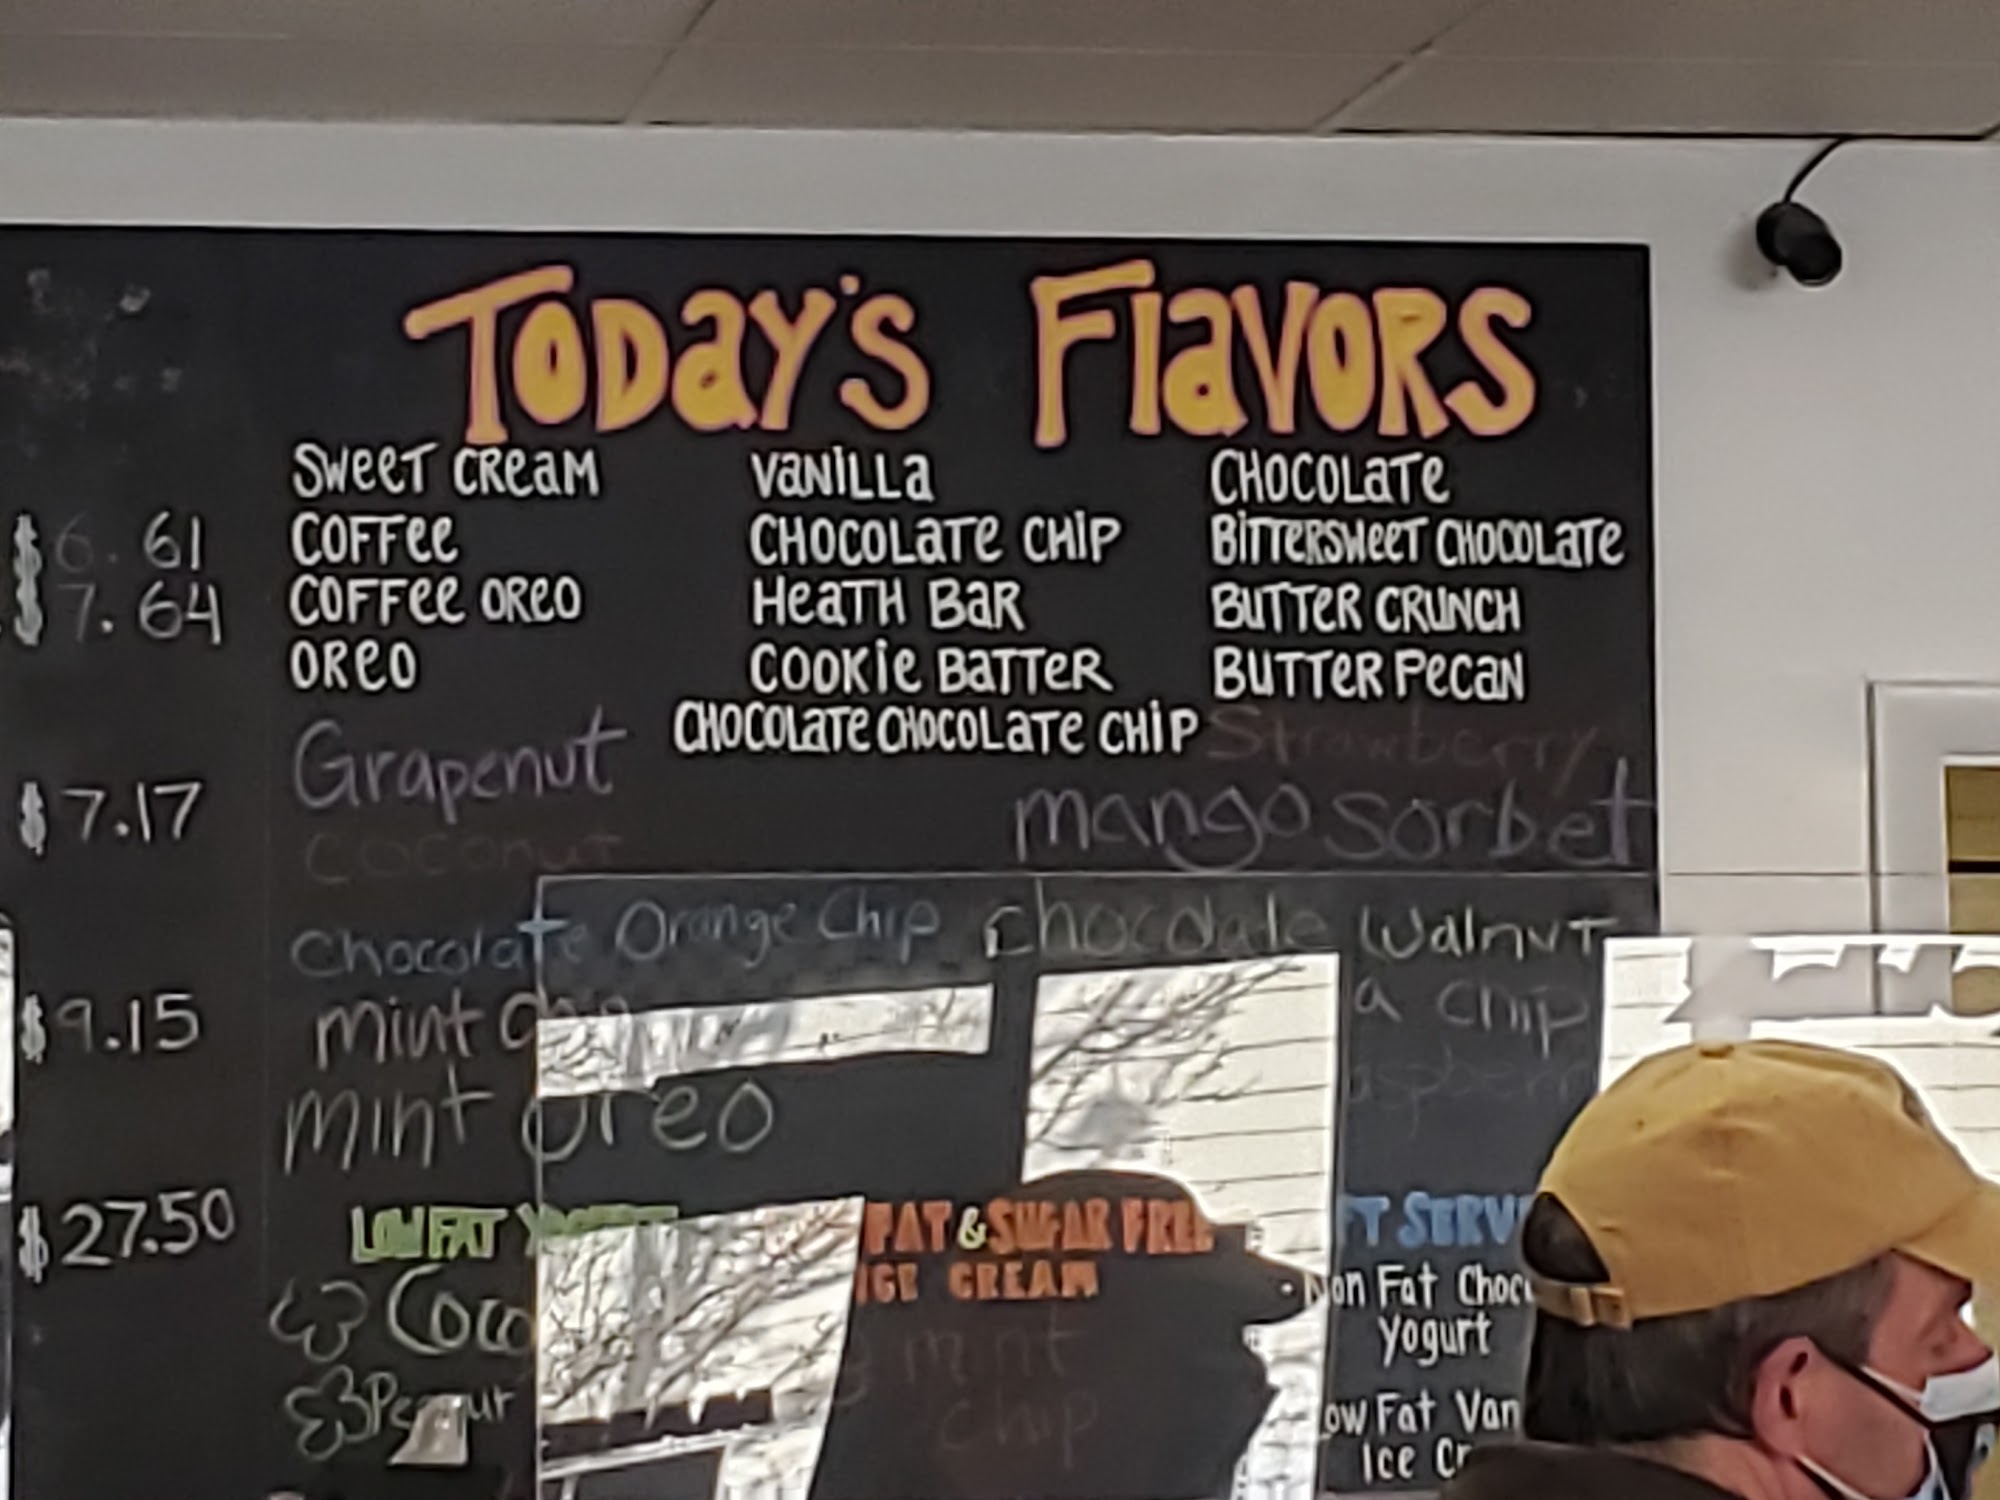 Today's Flavors
Sweet Cream Vanilla Chocolate
$6.61 Coffee Chocolate Chip Bittersweet Chocolate
$7.64 Coffee Oreo Heath Bar Butter Crunch
Oreo Cookie Batter Butter Pecan
Chocolate Chocolate Chip Strawberry
Grapenut
$7.17 mango sorbet
Coconut
Chocolate Orange Chip Chocolate Walnut
$9.15 mint Chip a Chip
mint oreo
$27.50 LOWFAT FAT & SUGAR FREE
ICE CREAM
Non Fat Choc
Yogurt
mint
Chip
Low Fat Van
Ice Cr